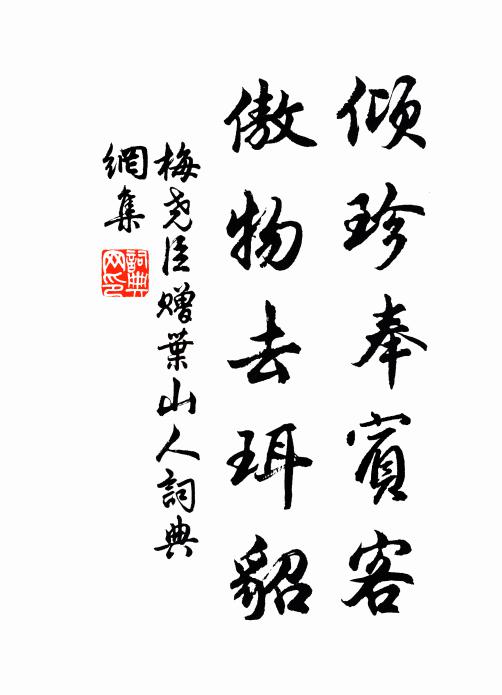 傾珍奉賓客
傲物去珥貂
梅尧臣赠葉山人詞典
網集
詞典
网印